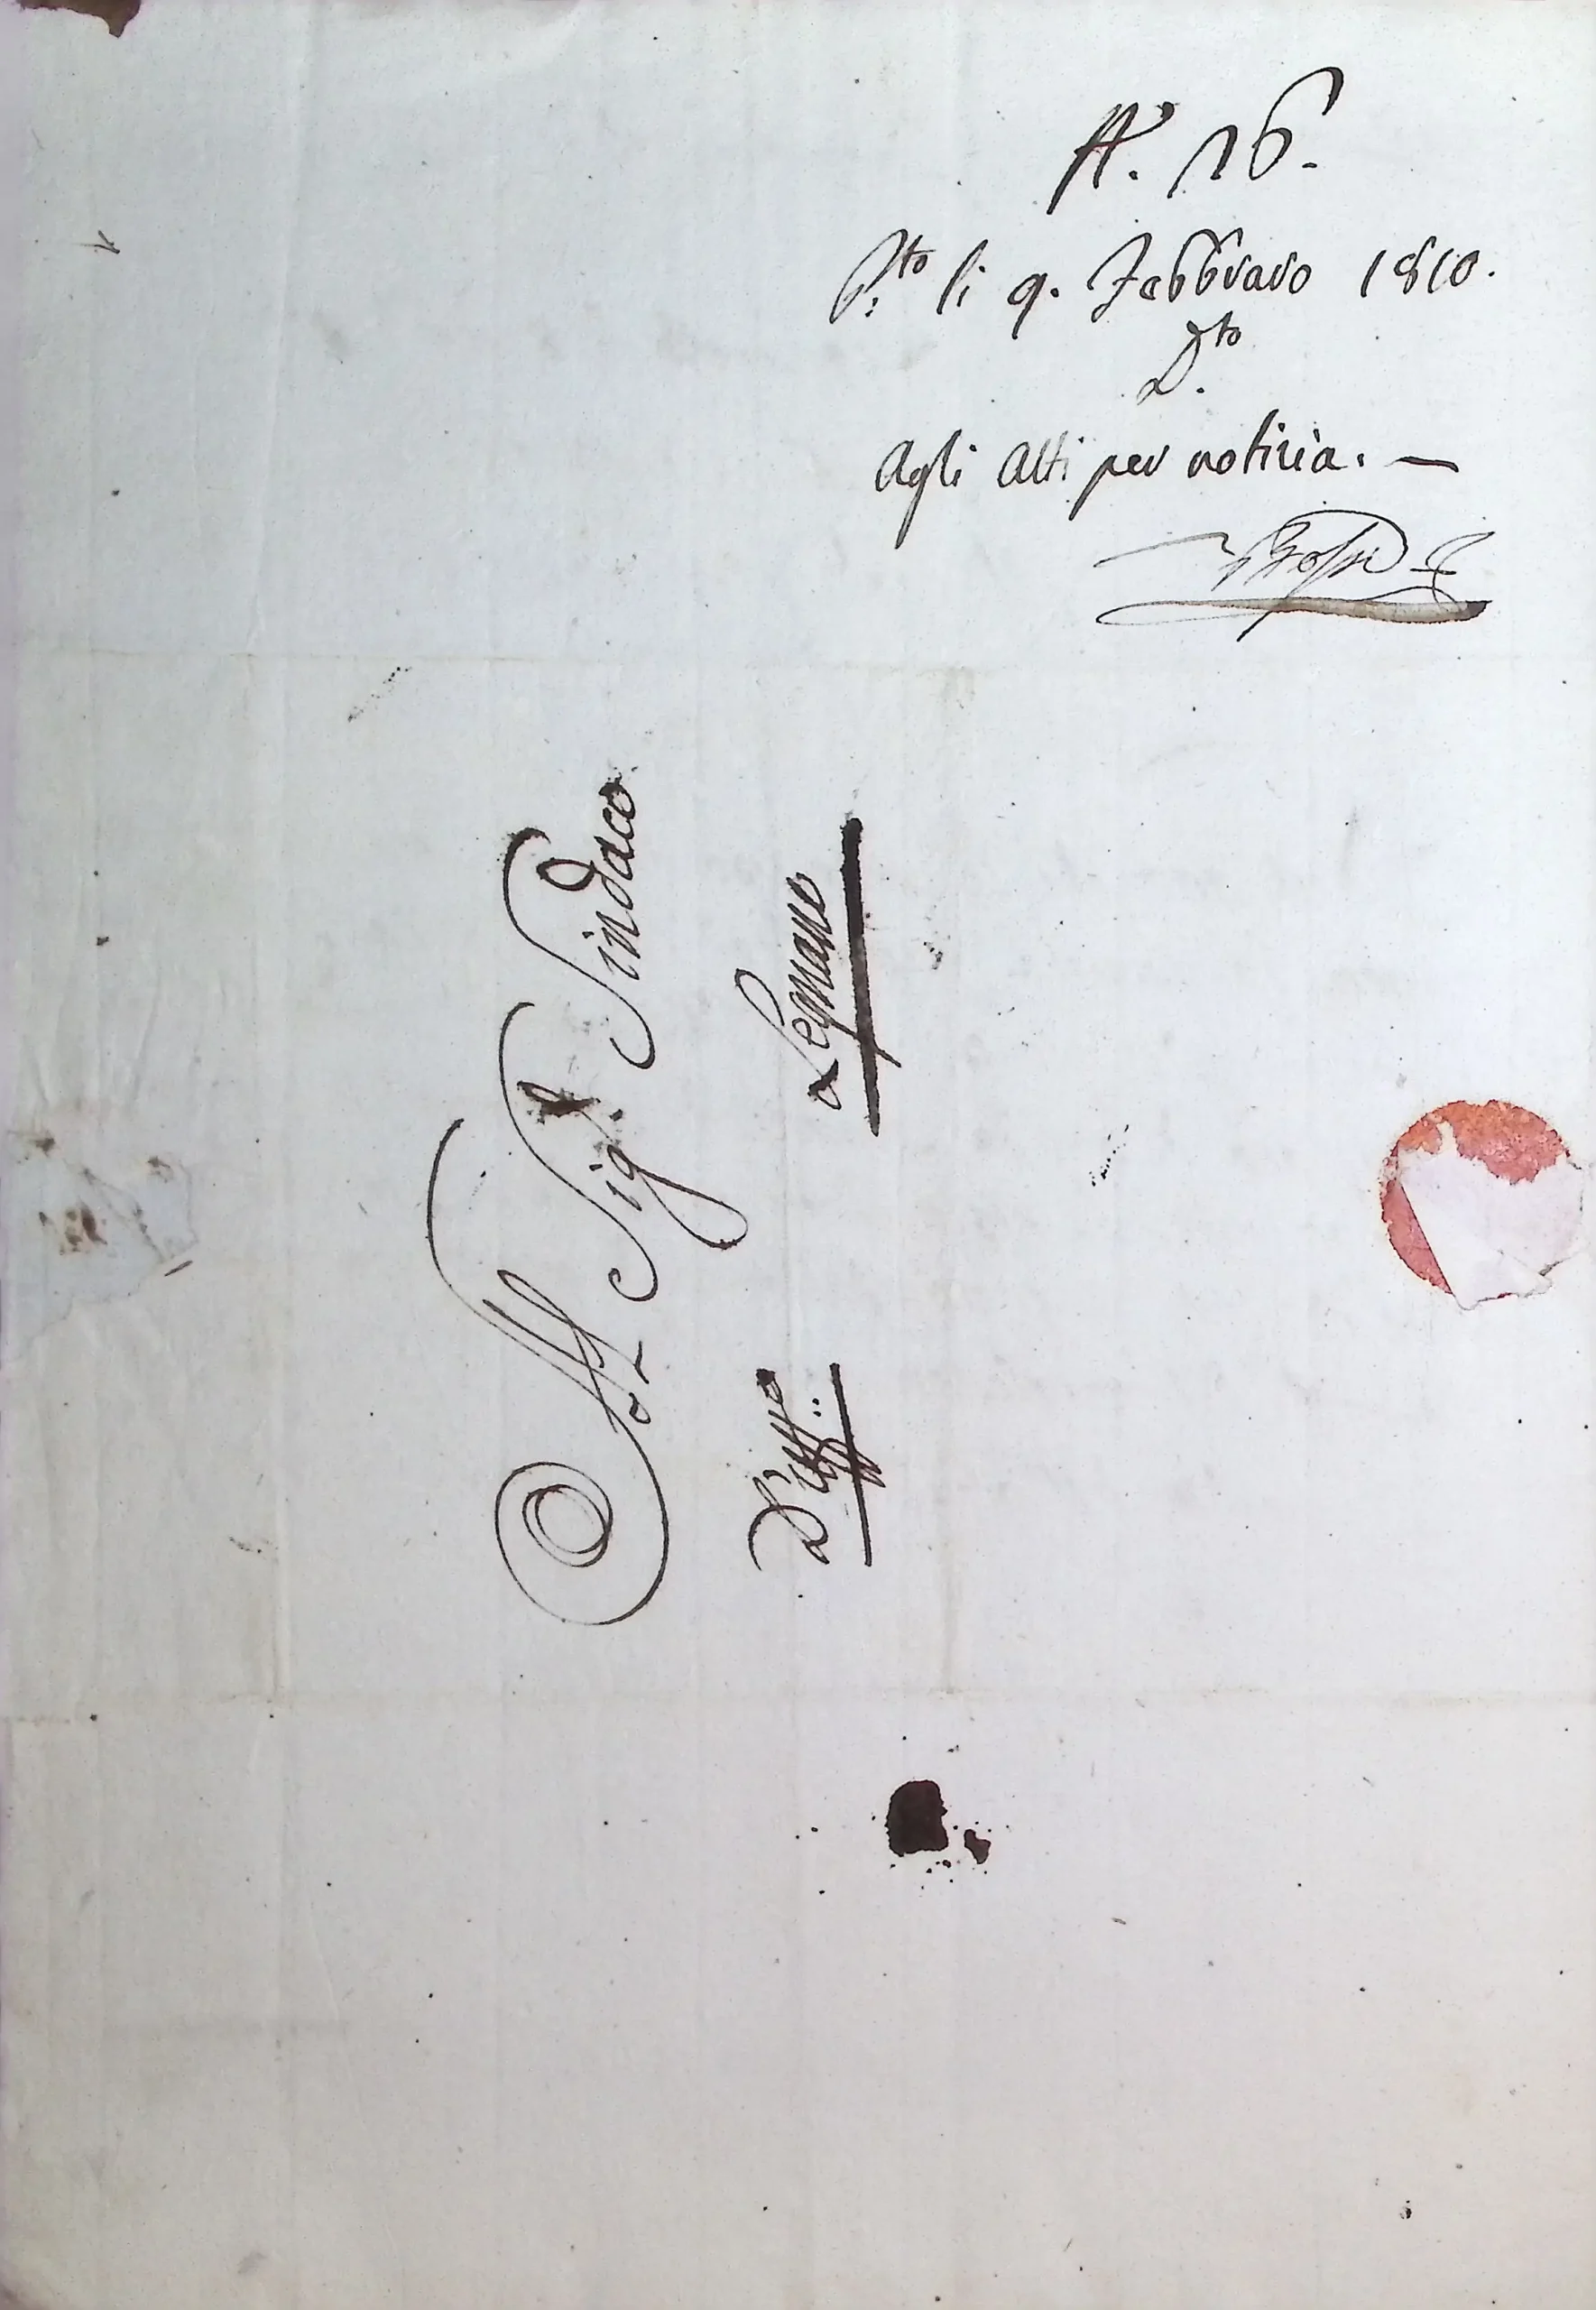 N. 16.
P.to li 9. Febbraro 1810.
D.to
Agli Atti per notizia. —
Al Sig.r Sindaco
D'Uff.o
Legnano